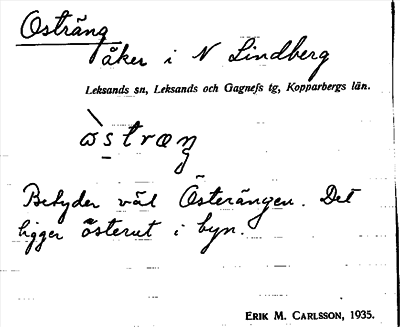 Osträng
åker i N Lindberg
Leksands sn, Leksands och Gagnefs tg, Kopparbergs län.
Betyder väl Österängen. Det
ligger österut i byn.
ERIK M. CARLSSON, 1935.